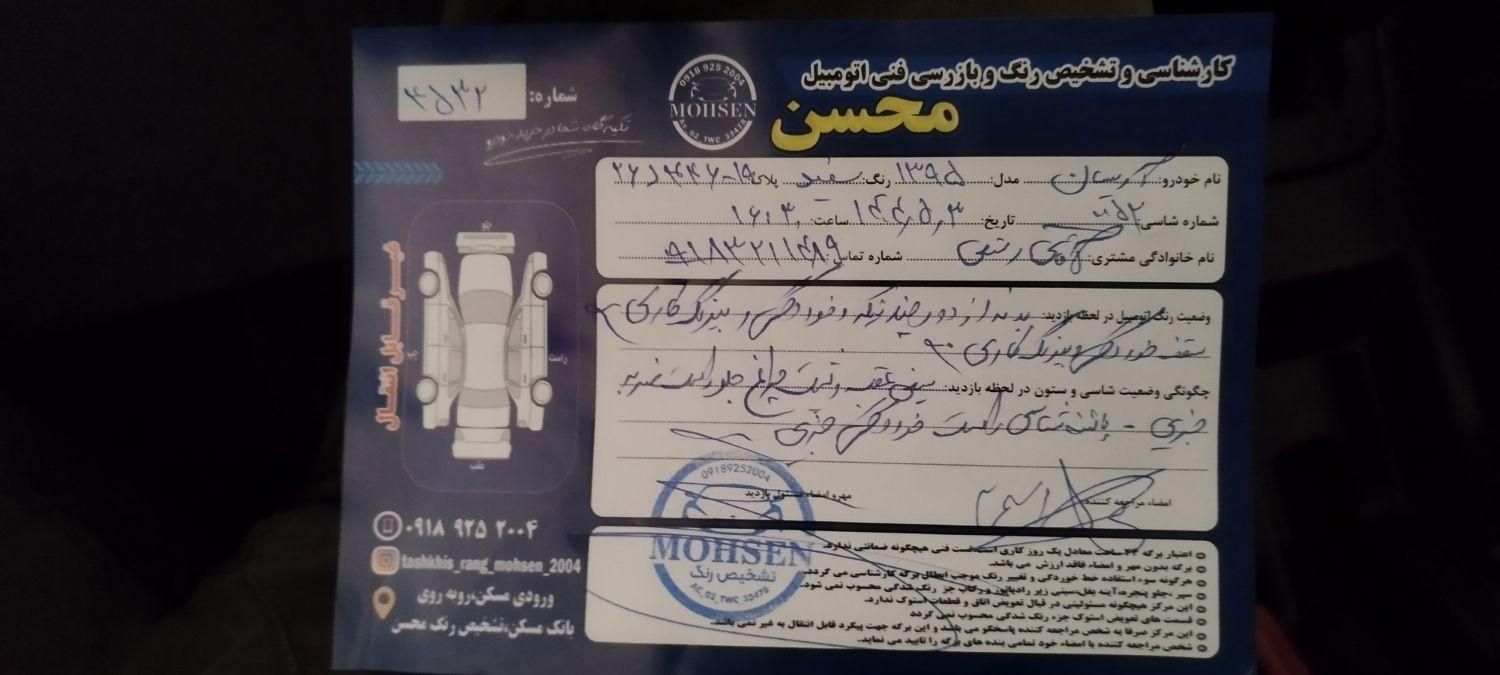 کارشناسی و تشخیص رنگ و بازرسی فنی اتومبیل
محسن
0918 925 2004
MOHSEN
AC_02_TWC_33478
شماره: ۴۵۳۲
تکیه گاه شما در خرید خودرو
نام خودرو: آریسان مدل: ۱۳۹۵ رنگ: سفید پلاک:
شماره شاسی: تاریخ: ساعت: ۱۶:۳۰
نام خانوادگی مشتری: شماره تماس:
وضعیت رنگ اتومبیل در لحظه بازدید: بدنه از دور چند لکه و خوردگی و بیرنگ کاری
سقف خوردگی و بیرنگ کاری
چگونگی وضعیت شاسی و ستون در لحظه بازدید: سینی عقب و چراغ جلو راست ضربه
جزیی - پاشنه شاسی راست خوردگی جزیی
امضاء مراجعه کننده
مهر و امضاء مسئول بازدید
09189252004
MOHSEN
تشخیص رنگ
AC_02_TWC_33478
جلو
راست
چپ
عقب
غیر قابل انتقال
۰۹۱۸ ۹۲۵ ۲۰۰۴
tashkhis_rang_mohsen_2004
ورودی مسکن،روبه روی
بانک مسکن،تشخیص رنگ محسن
اعتبار برگه ۲۴ ساعت معادل یک روز کاری است.تست فنی هیچگونه ضمانتی ندارد.
برگه بدون مهر و امضاء فاقد ارزش می باشد.
هرگونه سوء استفاده خط خوردگی و تغییر رنگ موجب ابطال برگه کارشناسی می گردد.
سپر ،جلو پنجره،آینه بغل،سینی زیر رادیاتور و رکاب جز رنگ شدگی محسوب نمی شود.
این مرکز هیچگونه مسئولیتی در قبال تعویض اتاق و قطعات استوک ندارد.
قسمت های تعویض استوک جزء رنگ شدگی محسوب نمی گردد
این مرکز صرفا به شخص مراجعه کننده پاسخگو می باشد و این برگه جهت پیگرد قابل انتقال به غیر نمی باشد.
شخص مراجعه کننده با امضاء خود تمامی بنده های برگه را تایید می نماید.